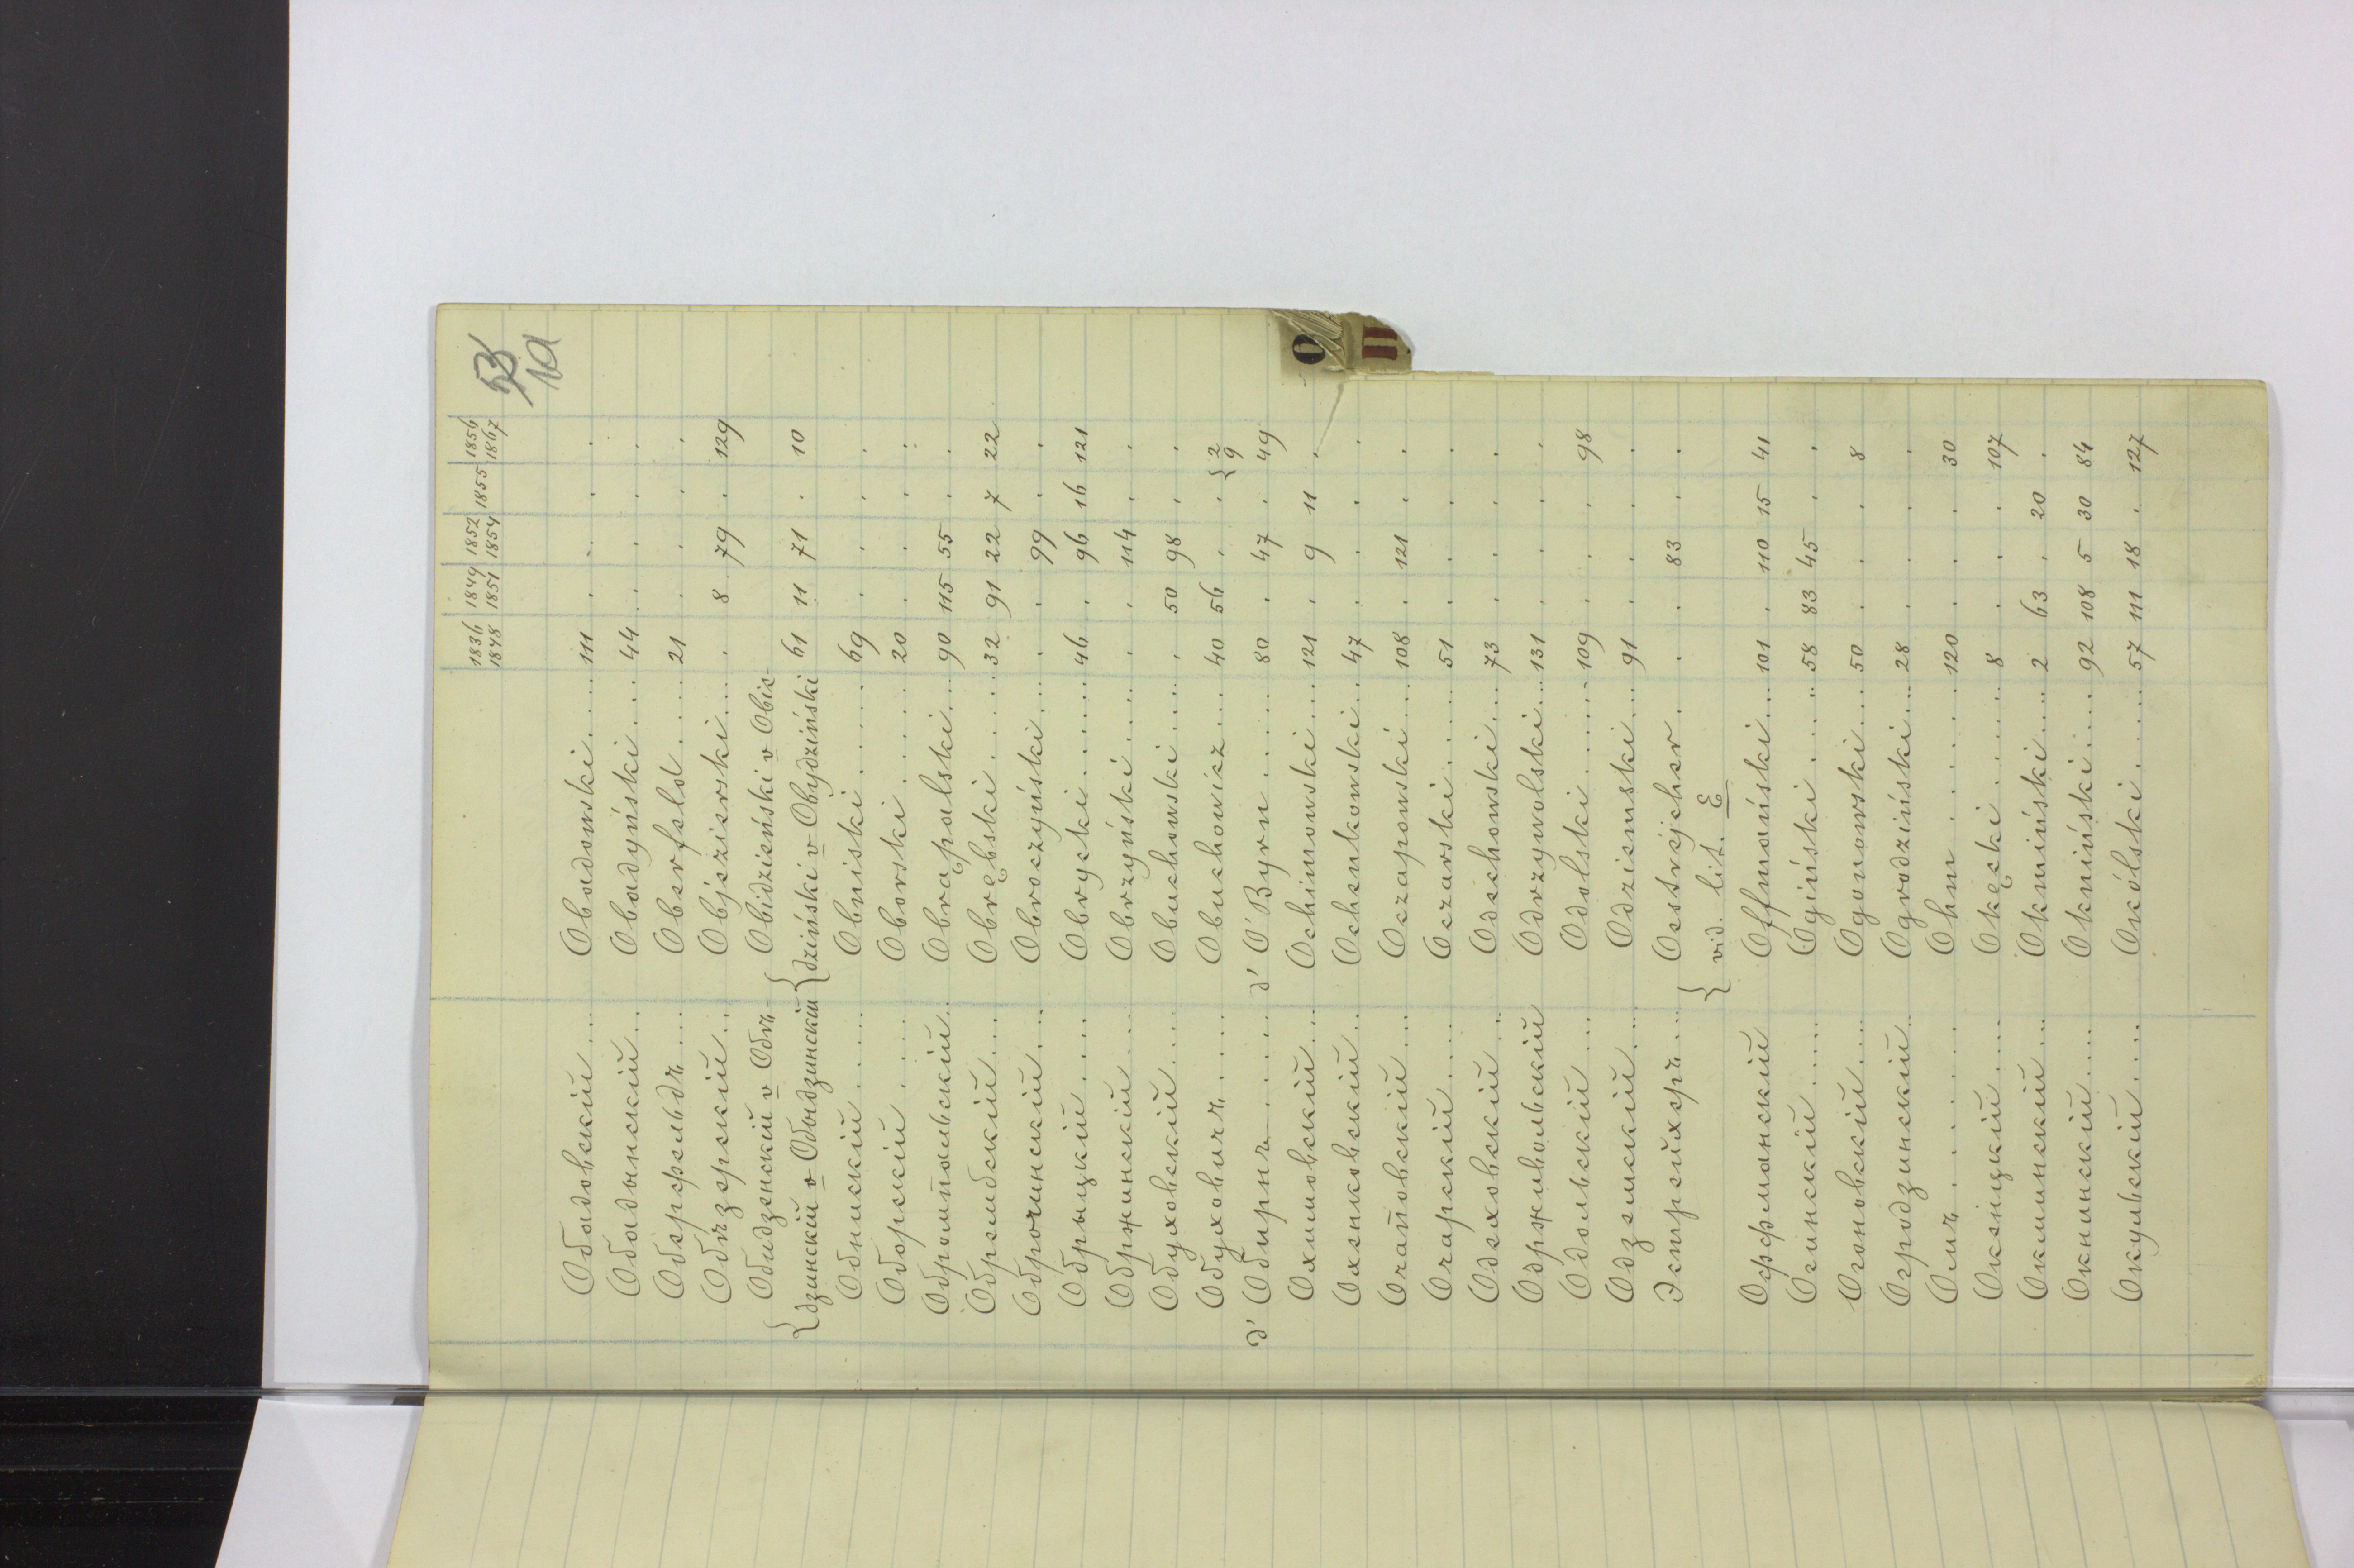 1836 1849 1852 1855 1856
1848 1851 1854 1867
Обадовскій .... Obadowski .... 111 . . . .
Обадынскій .. Obadyński .... 44 . . . .
Оберфельдъ .... Oberfeld .... 21 . . . .
Объезерскій .. Objezierski ... . 8 79 . 129
Обидзенскій v Обы- Obidzieński v Obie-
{дзинскій v Обыдзинскій {dziński v Obydziński 61 11 71 . 10
Обнискій .... Obniski .... 69 . . . .
Оборскій .... Oborski .... 20 . . . .
Обромпальскій .. Obrąpalski ... 90 115 55 . .
Обрембскій .... Obrębski .... 32 91 22 7 22
Оброчинскій ... Obroczyński ... . . 99 . .
Обрыцкій .... Obrycki .... 46 . 96 16 121
Обржинскій .... Obrzyński .... . . 114 . .
Обуховскій .... Obuchowski .... . 50 98 . .
Обуховичъ .... Obuchowicz .... 40 56 . . {2 9
д' Обирнъ .... d' O'Byrn .... 80 . 47 . 49
Охимовскій ... Ochimowski ... 121 . 9 11 .
Охенковскій .. Ochenkowski .. 47 . . . .
Очаповскій ... Oczapowski ... 108 . 121 . .
Очарскій .... Oczarski .... 51 . . . .
Одеховскій ... Odechowski ... 73 . . . .
Одрживольскій Odrzywolski ... 131 . . . .
Одольскій ... Odolski .... 109 . . . 98
Одземскій .... Odziemski ... 91 . . . .
Эстрейхеръ ... Oestrejcher . . . 83 . .
{ vid. lit. E
Оффманскій Offmański ... 101 . 110 15 41
Огинскій .... Ogiński .... 58 83 45 . .
Огоновскій ... Ogonowski ... 50 . . . 8
Огродзинскій .. Ogrodziński ... 28 . . . .
Омъ ....... Ohm ...... 120 . . . 30
Окенцкій .... Okęcki ..... 8 . . . 107
Окминскій ... Okmiński .... 2 63 . 20 .
Окнинскій .... Okniński .... 92 108 5 30 84
Окульскій .... Okólski ..... 57 111 18 . 127
O
П